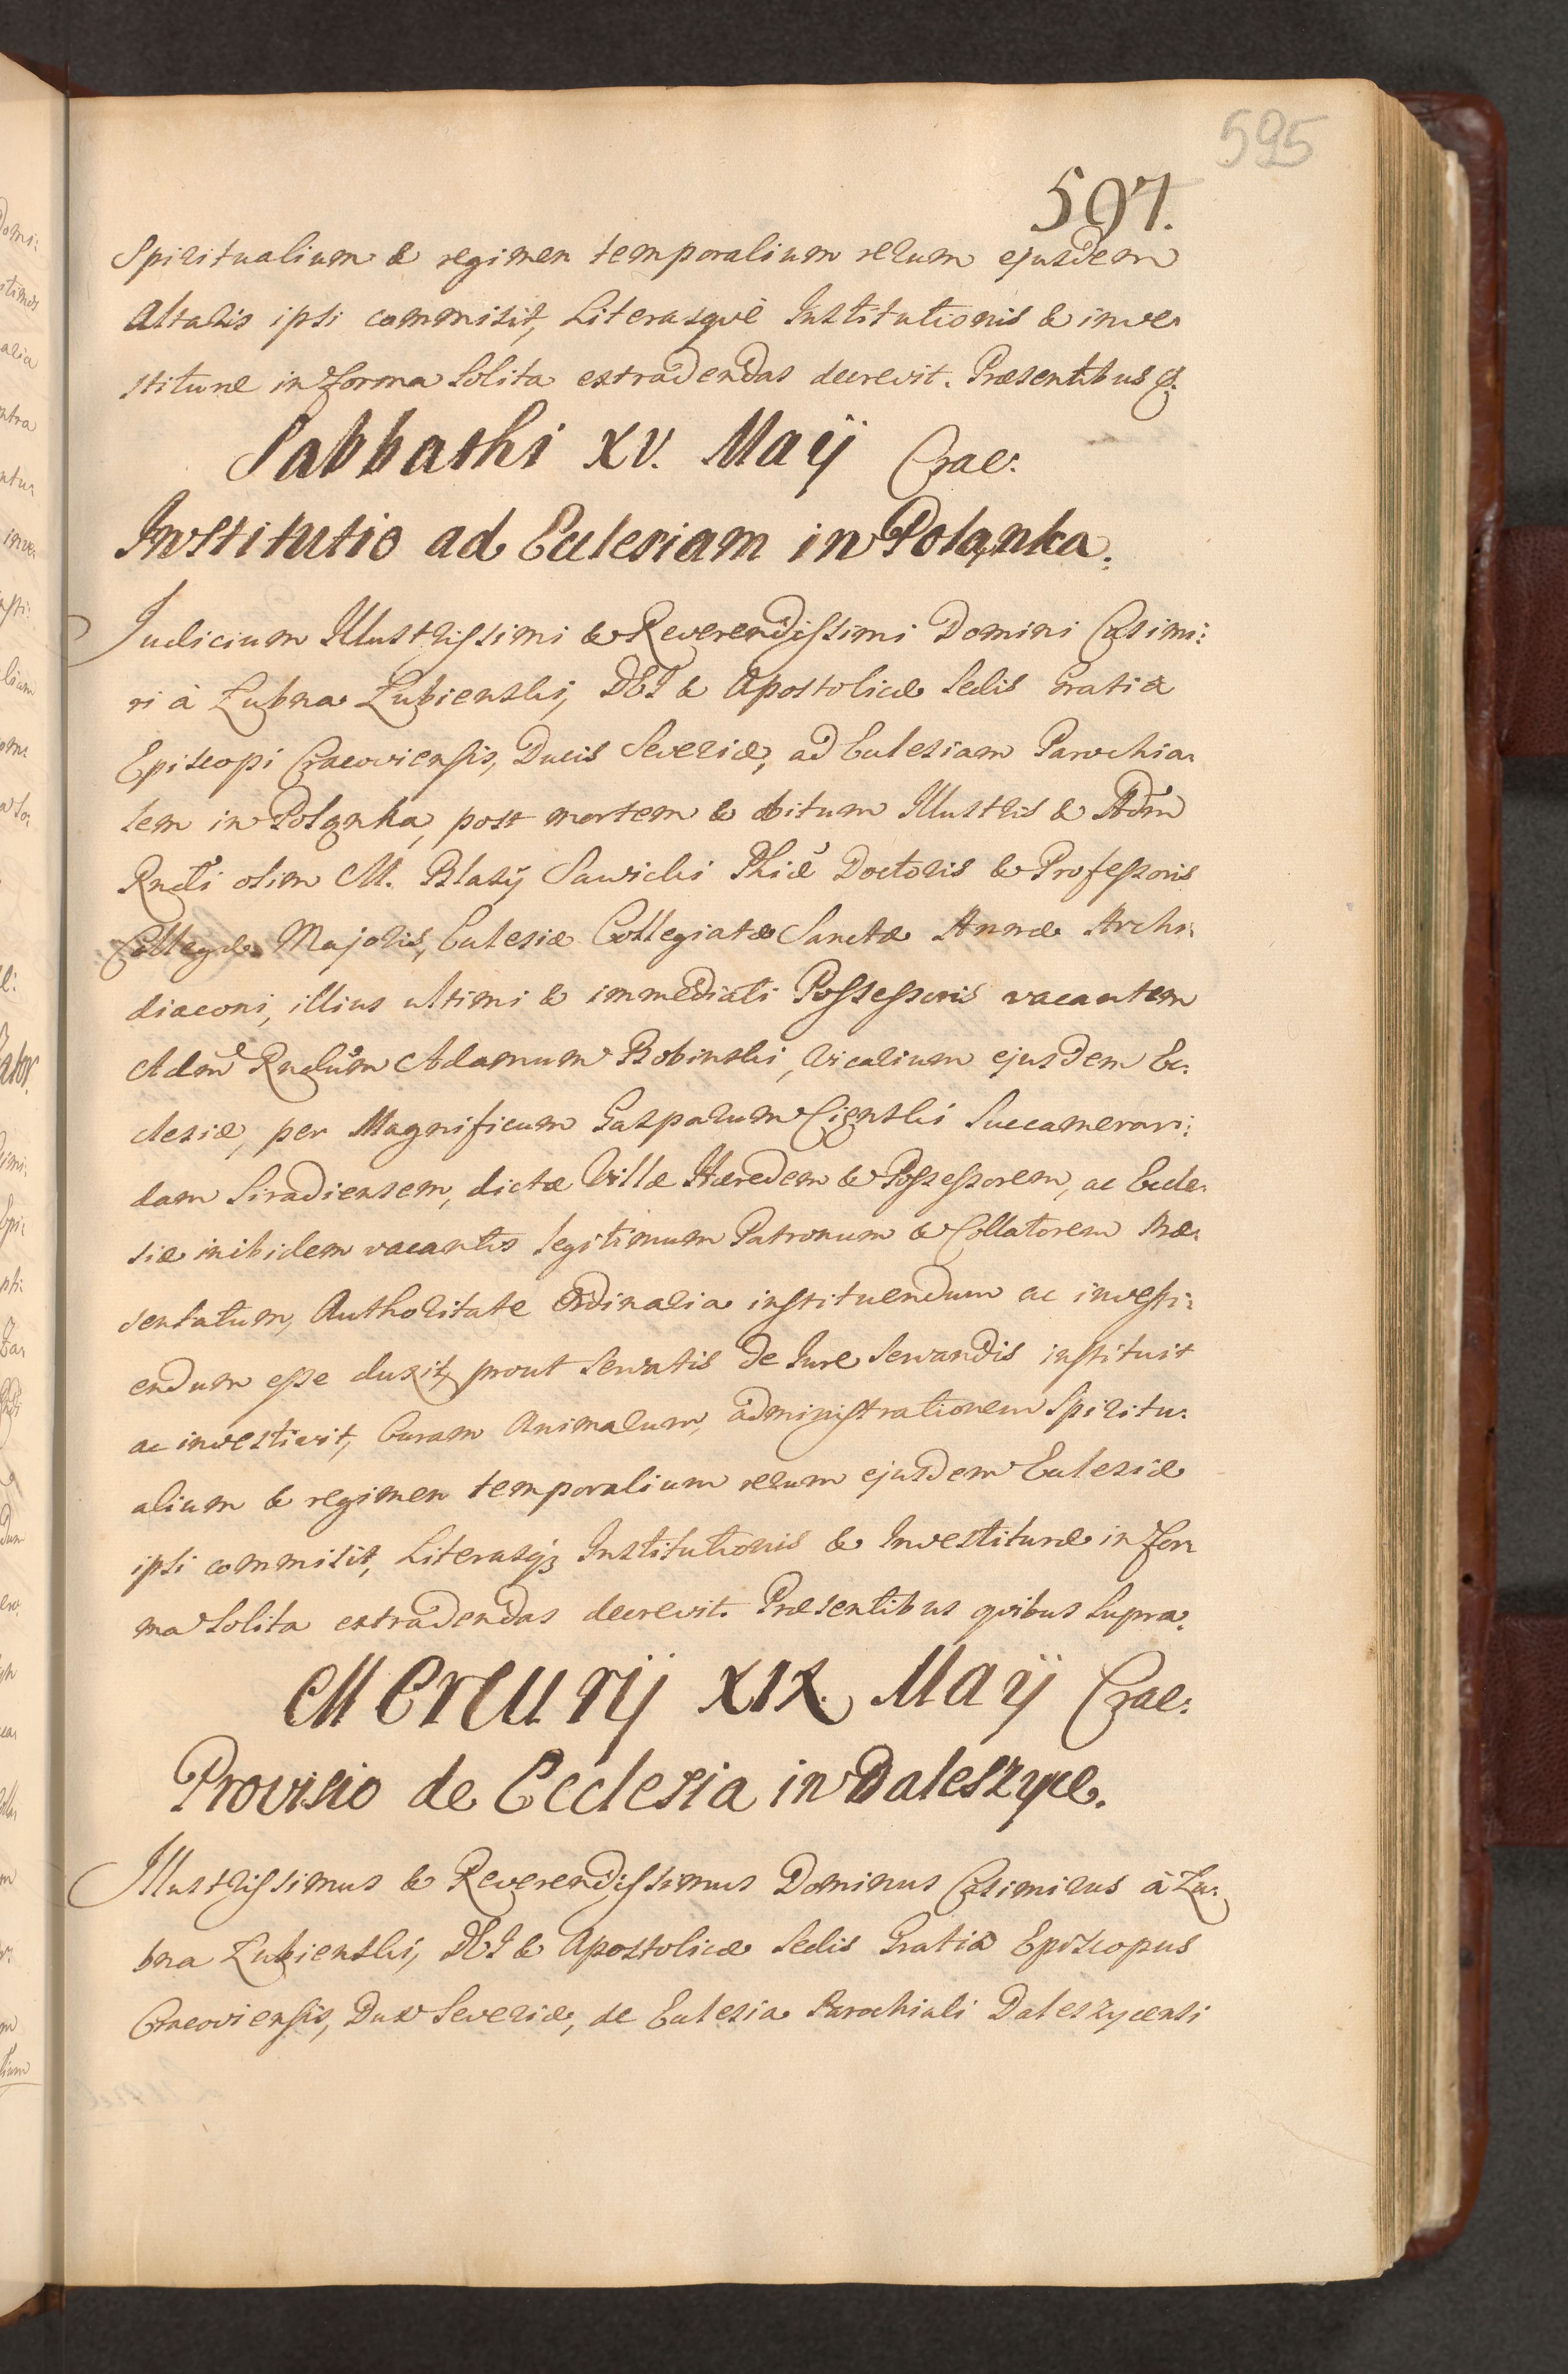 595
597.
Spiritualium & regimen temporalium rerum ejusdem
Altaris ipsi commisit, Literasque Institutionis & inve-
stituræ in forma solita extradendas decrevit. Præsentibus &.
Sabbathi XV. Maij Crac:
Institutio ad Ecclesiam in Polanka.
Judicium Illustrissimi & Reverendissimi Domini Casimi:
ri à Łubna Łubienski, DEI & Apostolicæ Sedis Gratia
Episcopi Cracoviensis, Ducis Severiæ, ad Ecclesiam Parochia-
lem in Polanka, post mortem & obitum Illustris & Adm
Rndi olim M. Blasij Sawicki Phiæ Doctoris & Professoris
Collegæ Majoris, Ecclesiæ Collegiatæ Sanctæ Annæ Archi:
diaconi, illius ultimi & immediati Possessoris vacantem
Adm Rndum Adamum Bobinski, Vicarium ejusdem Ec:
clesiæ, per Magnificum Gasparum Cienski Succamerari:
dam Siradiensem, dictæ Villæ Hæredem & Possessorem, ac Eccle:
siæ inibidem vacantis legitimum Patronum & Collatorem Præ:
sentatum, Authoritate Ordinaria instituendum ac investi:
endum esse duxit, prout servatis de Jure servandis instituit
ac investivit, Curam Animarum, administrationem Spiritu:
alium & regimen temporalium rerum ejusdem Ecclesiæ
ipsi commisit, Literasq3 Institutionis & Investituræ in for:
ma solita extradendas decrevit. Præsentibus quibus supra.
Mercurij XIX. Maij Crac:
Provisio de Ecclesia in Daleszyce.
Illustrissimus & Reverendissimus Dominus Casimirus à Łu:
bna Łubienski, DEI & Apostolicæ Sedis Gratia Episcopus
Cracoviensis, Dux Severiæ, de Ecclesia Parochiali Daleszycensi